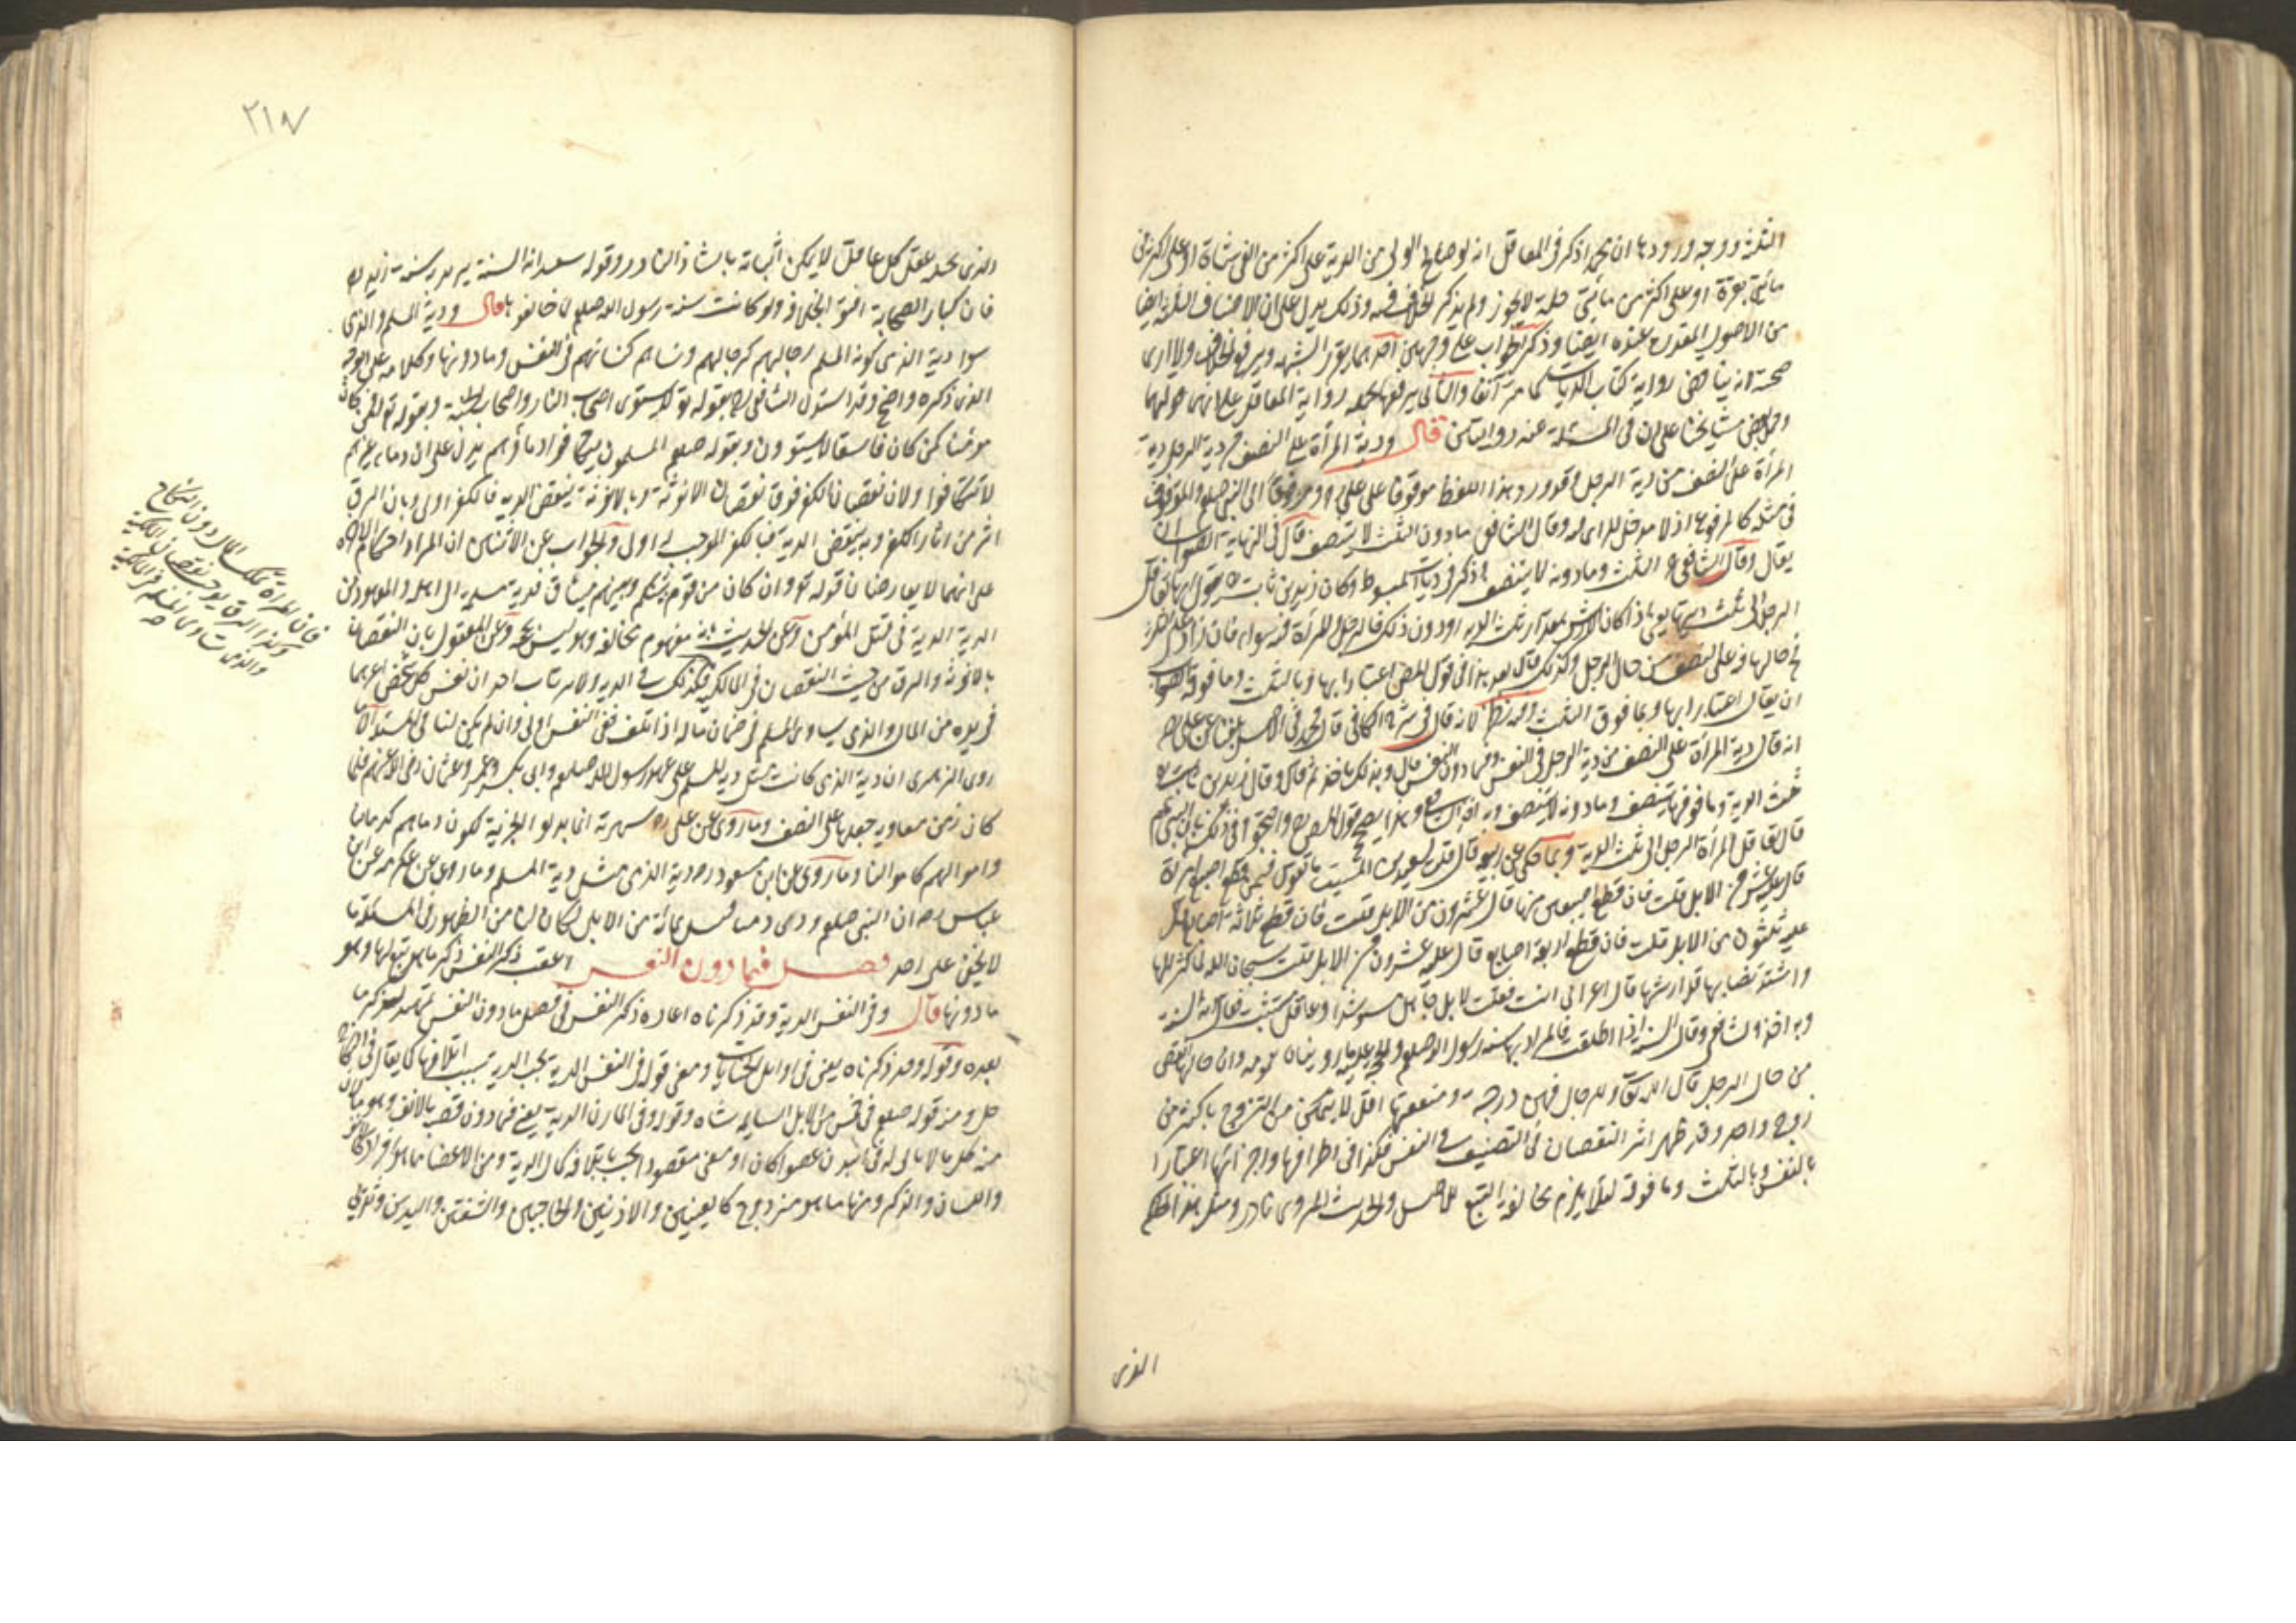 الثلثة ووجه ورودها ان محمدا ذكر فى المعاقل انه لو صالح الولى من الدية على اكثر من الفى شاة او على اكثر من
مائتى بقرة او على اكثر من مائتى حلة لا يجوز ولم يذكر الخلاف فيه وذلك يدل على ان الاصناف الثلثة ايضا
من الاصول المقدرة عنده ايضا وذكر الجواب على وجهين احدهما يقرر الشبهة ويرفع الخلاف ولا ارى
صحته انه يناقض رواية كتاب الديات كما مر آنفا والثانى يرفعها بحمل رواية المعاقل على انهى قولهما
وحمل بعض مشايخنا على ان فى المسئلة عنه روايتان قال ودية المرأة على النصف من دية الرجل دية
المرأة على النصف من دية الرجل وقد ورد هذا اللفظ موقوفا على على ومرفوعا الى النبى صلعم والموقوف
فى مثله كالمرفوع اذ لا مدخل للرأى فيه وقال الشافعى مادون الثلث لا يتنصف قال فى النهاية الصواب ان
يقال وقال الشافعى الثلث ومادونه لا يتنصف ذكر فى ديات المبسوط وكان زيد بن ثابت يقول انها تعاقل
الرجل الى ثلث ديتها يعنى اذا كان الارش بقدر ثلث الدية او دون ذلك فالرجل والمرأة فيه سواء فان زاد على الثلث
فح حالها فيه على النصف من حال الرجل وكذلك قال بعد هذا فى قول المص اعتبارا بها وبالثلث وما فوقه الصواب
ان يقال اعتبارا بها وبما فوق الثلث وفيه نظر لانه قال فى شرح الكافى قال محمد فى الاصل بلغنا عن على رضه
انه قال دية المرأة على النصف من دية الرجل فى النفس وفيما دون النفس قال وبذلك نأخذ ثم قال وقال زيد بن ثابت
ثلث الدية وما فوقها يتنصف ومادونه لا يتنصف وبه اخذ الشافعى وبهذا يصح قول المص واحتجوا فى ذلك بان النبى صلعم
قال تعاقل المرأة الرجل الى ثلث الدية وبما حكى عن ربيعة قال قلت لسعيد بن المسيب ما تقول فيمن قطع اصبع امرأة
قال عليه عشر من الابل قلت فان قطع اصبعين منها قال عشرون من الابل قلت فان قطع ثلاثة اصابع قال
عليه ثلثون من الابل قلت فان قطع اربعة اصابع قال عليه عشرون من الابل قلت سبحان الله لما كثر المها
واشتد مصابها قل ارشها قال اعراقى انت فقلت لا بل جاهل مسترشد او عاقل متثبت فقال انه السنة
وبه اخذ الشافعى وقال السنة اذا اطلقت فالمراد بها سنة رسول الله صلعم والحجة عليه ما رويناه بعمومه وان حالها انقص
من حال الرجل قال الله تعالى وللرجال عليهن درجة ومنفعتها اقل لا يتمكن من التزوج باكثر من
زوج واحد وقد ظهر اثر النقصان فى التنصيف فى النفس فكذا فى اطرافها واجزائها اعتبارا
بالنفس وبالثلث وما فوقه لئلا يلزم مخالفة التبع للاصل والحديث المروى نادر ومثل هذا الحكم
الذى
٢١٨
الذى يحيله عقل كل عاقل لا يمكن اثباته بالشاذ النادر وقوله سعيد انه السنة يريد سنة زيد
فان كبار الصحابة افتوا بخلافه ولو كانت سنة رسول الله صلعم لما خالفوها قال ودية المسلم والذمى
سواء دية الذمى كدية المسلم رجالهم كرجالهم ونساءهم كنسائهم فى النفس ومادونها وكلامه على الوجه
الذى ذكره واضح وقد استدل الشافعى بقوله تع لا يستوى اصحاب النار واصحاب الجنة وبقوله تع افمن كان
مؤمنا كمن كان فاسقا لا يستوون وبقوله صلعم المسلمون تتكافؤ دماؤهم يدل على ان دماء غيرهم
لا تتكافؤ ولان نقصان الكفر فوق نقصان الانوثة وبالانوثة ينتقص الدية فبالكفر اولى وبان الرق
اثر من آثار الكفر وبه ينتقص الدية فبالكفر الموجب له اولى والجواب عن الاثنين ان المراد احكام الآخرة
على انهما لا يعارضان قوله تع وان كان من قوم بينكم وبينهم ميثاق فدية مسلمة الى اهله والمعهود من
الدية الدية فى قتل المؤمن وعن الحديث بانه مفهوم مخالفة وهو ليس بحجة وعن المعقول بان النقصان
بالانوثة والرق من حيث النقصان فى المالكية فكذلك فى الدية ولا يرتاب احد ان نفس كل شخص اعز مما
فى يده من المال والذمى يساوى المسلم فى ضمان ماله اذا اتلف ففى النفس اولى وان لم يكن لنا فى المسئلة الا ما
روى الزهرى ان دية الذمى كانت مثل دية المسلم على عهد رسول الله صلعم وابى بكر وعمر وعثمان رضى الله عنهم فلما
كان زمن معاوية جعلها على النصف وما روى عن على رضه انه انما بذلوا الجزية لتكون دماءهم كدمائنا
واموالهم كاموالنا وما روى عن ابن مسعود دية الذمى مثل دية المسلم وما روى عن عكرمة عن ابن
عباس رضه ان النبى صلعم ودى ذميا قتل بمائة من الابل لكان لنا من الظهور فى المسئلة ما
لا يخفى على احد فصل فيما دون النفس اعقب ذكر النفس ذكر ما هو تبع لها وهو
مادونها قال وفى النفس الدية وقد ذكرناه اعاد ذكر النفس فى فصل مادون النفس تمهيدا لذكر ما
بعده وقوله وقد ذكرناه يعنى فى اوائل الجنايات ومعنى قوله فى النفس الدية تجب الدية بسبب اتلافها كما يقال فى النكاح
حل ومنه قوله صلعم فى خمس من الابل السائمة شاة وقوله وفى المارن الدية يعنى فيما دون قصبة الانف وهو ما لان
منه كل ما لا ثانى له فى البدن عضوا كان او معنى مقصودا تجب باتلافه كمال الدية ومن الاعضاء ما هو افراد كالانف
واللسان والذكر ومنها ما هو مزدوج كالعينين والاذنين والحاجبين والشفتين واليدين وثديى
فان المرأة تملك المال دون النكاح
وكذا الرق يوجب نقصان المالكية
والذمى يساوى المسلم فى المالكية